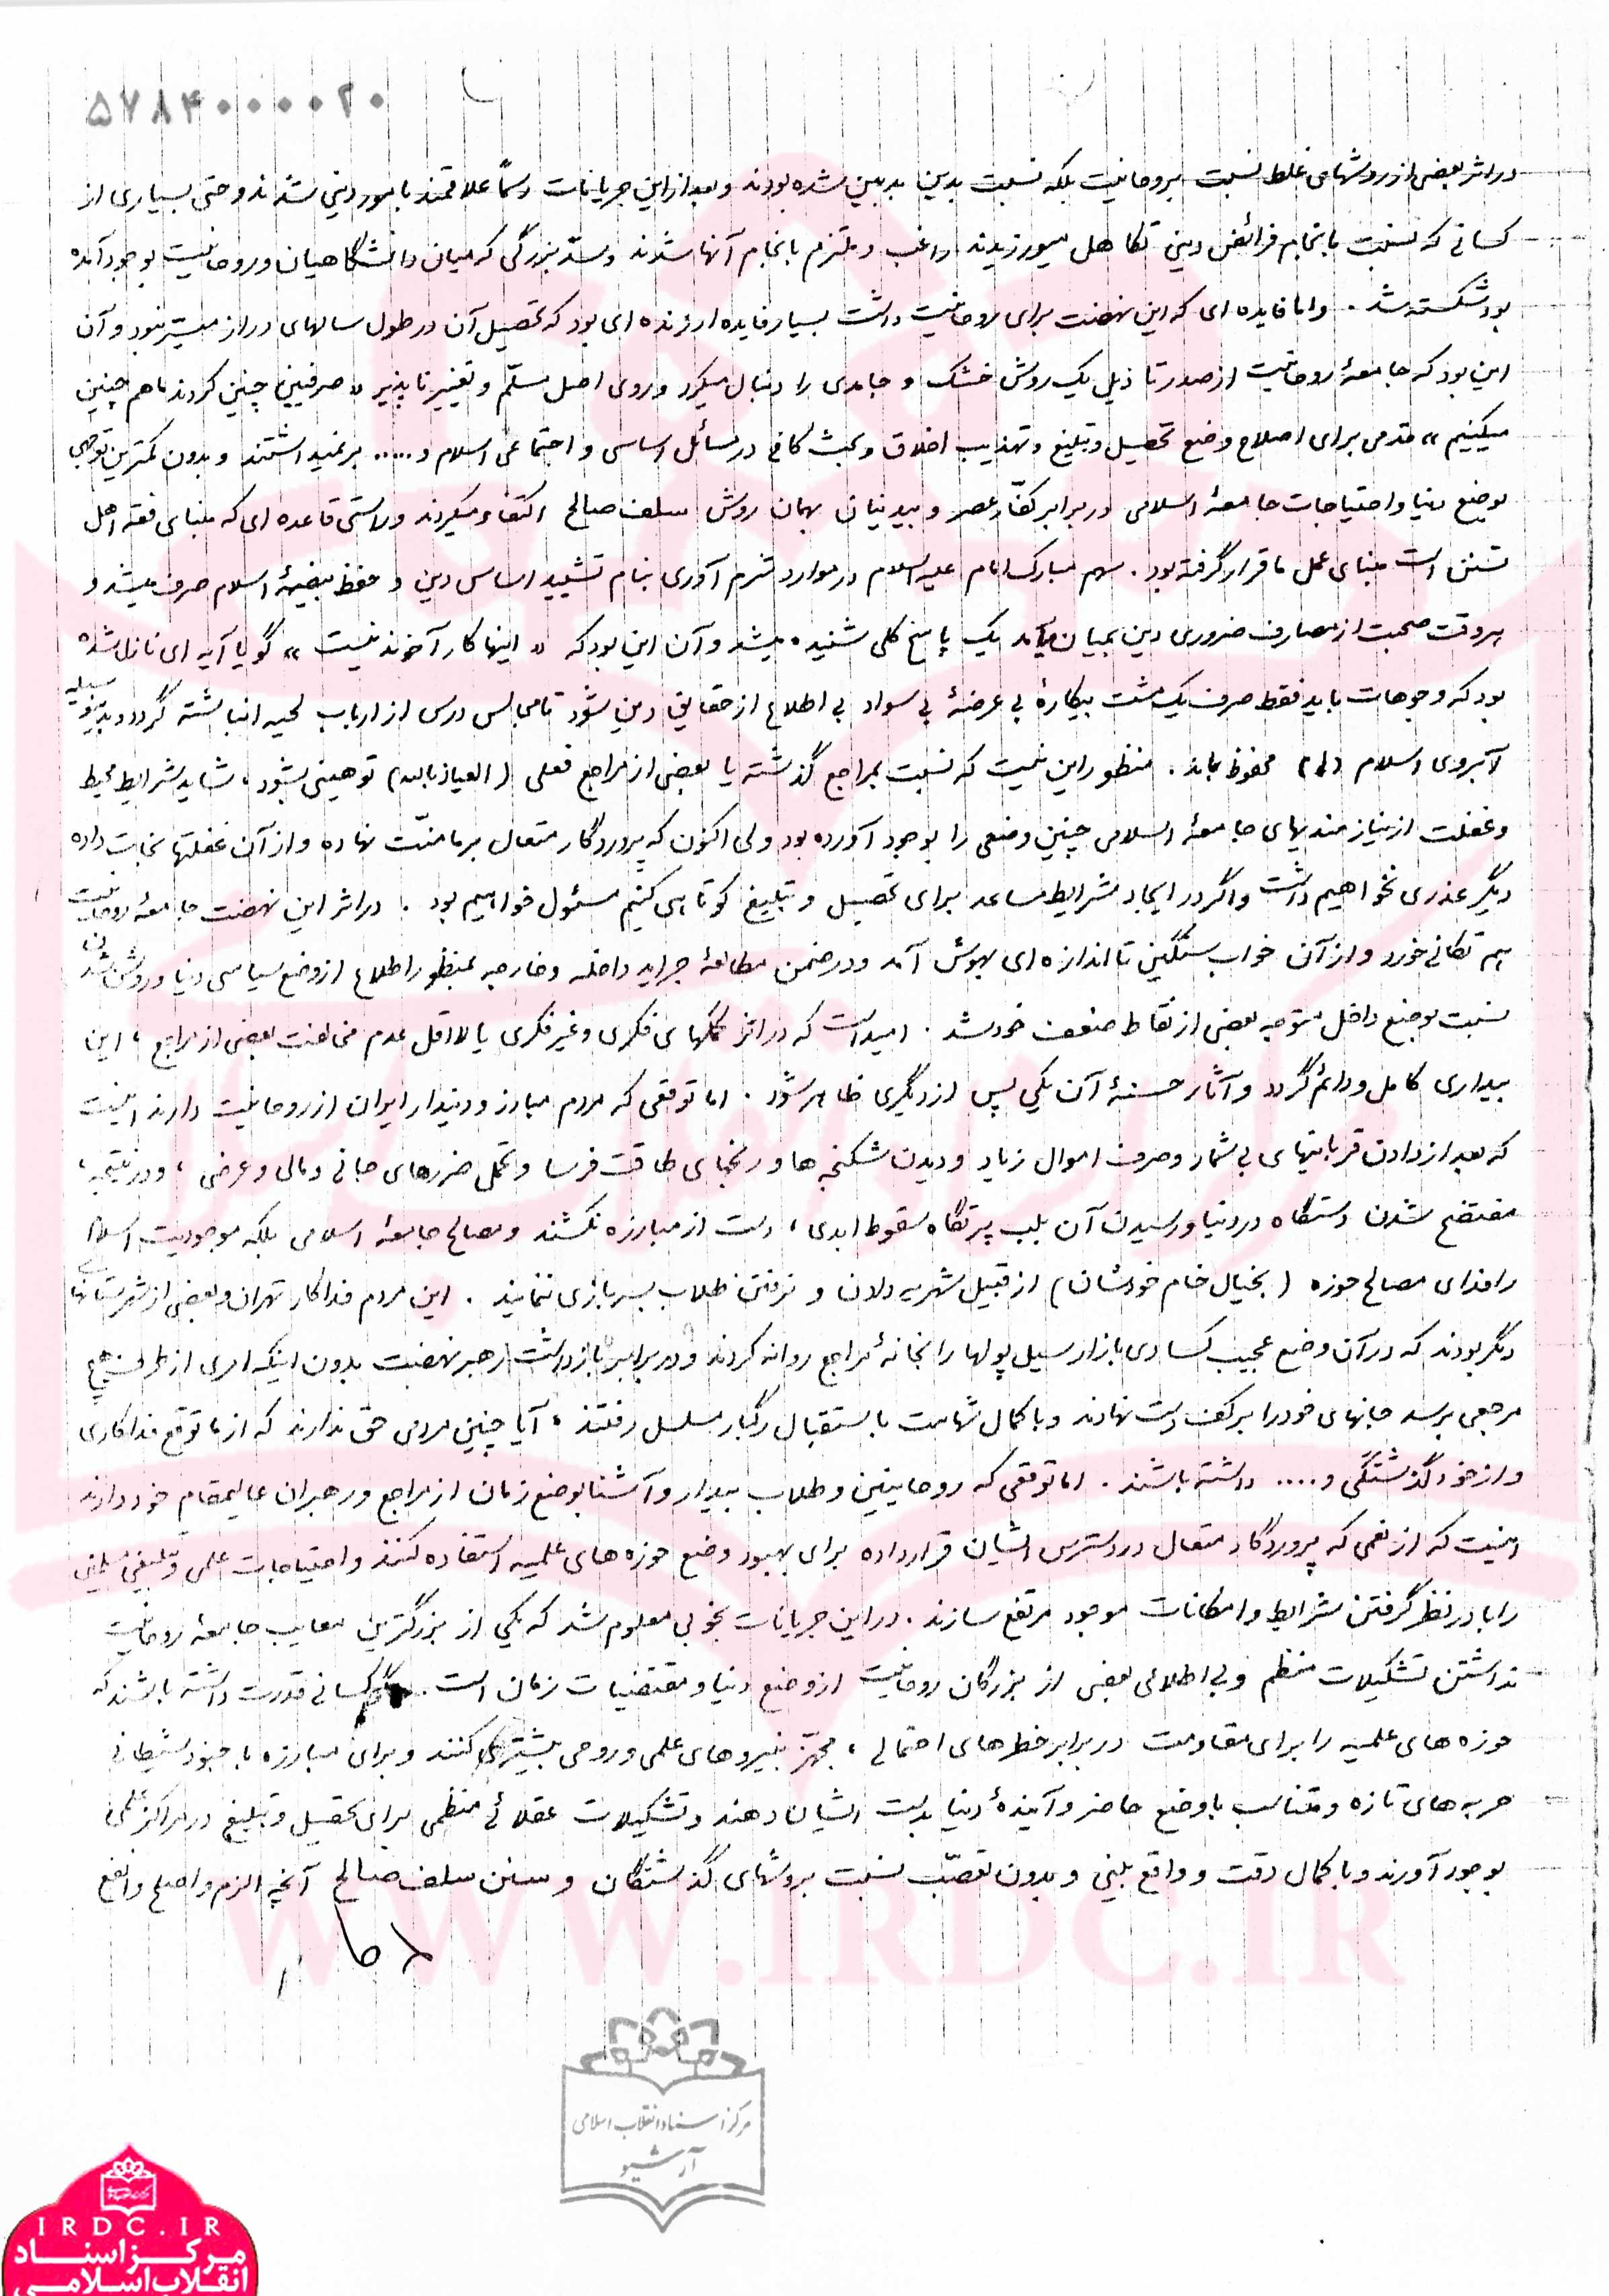 ۵۷۸۴۰۰۰۰۰۲۰
در اثر بعضی از روشهای غلط نسبت بروحانیت بلکه نسبت بدین بدبین شده بودند و بعد از این جریانات رسماً علاقمند بامور دینی شدند و حتی بسیاری از
کسانی که نسبت بانجام فرائض دینی تکاهل میورزیدند راغب و ملتزم بانجام آنها شدند و سدّ بزرگی که میان دانشگاهیان و روحانیت بوجود آمده
بود شکسته شد . و اما فایده ای که این نهضت برای روحانیت داشت بسیار فایده ارزنده ای بود که تحصیل آن در طول سالهای دراز میسر نبود و آن
این بود که جامعهٔ روحانیت از صدر تا ذیل یک روش خشک و جامدی را دنبال میکرد و روی اصل مسلّم و تغییر ناپذیر « صرفیین چنین کردند ما هم چنین
میکنیم » قدمی برای اصلاح وضع تحصیل و تبلیغ و تهذیب اخلاق و بحث کافی در مسائل اساسی و اجتماعی اسلام و ..... برنمیداشتند و بدون کمترین توجهی
بوضع دنیا و احتیاجات جامعهٔ اسلامی در برابر کفّار عصر و بیدینان بهمان روش سلف صالح اکتفاء میکردند و راستی قاعده ای که مبنای فقه اهل
تسنن است مبنای عمل ما قرار گرفته بود . سهم مبارک امام علیه السلام در موارد شرم آوری بنام تشیید اساس دین و حفظ بیضهٔ اسلام صرف میشد و
هر وقت صحبت از مصارف ضروری دین بمیان میآمد یک پاسخ کلی شنیده میشد و آن این بود که « اینها کار آخوند نیست » گویا آیه ای نازل شده
بود که وجوهات باید فقط صرف یک مشت بیکارهٔ بی عرضهٔ بی سواد بی اطلاع از حقایق دین شود تا مجالس درس از ارباب لحیه انباشته گردد و بدینوسیله
آبروی اسلام محفوظ بماند . منظور این نیست که نسبت بمراجع گذشته یا بعضی از مراجع فعلی ( العیاذ بالله ) توهینی بشود ، شاید شرایط محیط
و غفلت از نیازمندیهای جامعهٔ اسلامی چنین وضعی را بوجود آورده بود ولی اکنون که پروردگار متعال بر ما منّت نهاده و از آن غفلتها نجات داده
دیگر عذری نخواهیم داشت و اگر در ایجاد شرایط مساعد برای تحصیل و تبلیغ کوتاهی کنیم مسئول خواهیم بود . در اثر این نهضت جامعهٔ روحانیت
هم تکانی خورد و از آن خواب سنگین تا اندازه ای بهوش آمد و در ضمن مطالعهٔ جراید داخله و خارجه بمنظور اطلاع از وضع سیاسی دنیا و روشن شدن
نسبت بوضع داخل متوجه بعضی از نقاط ضعف خود شد . امید است که در اثر کمکهای فکری و غیر فکری یا لااقل عدم مخالفت بعضی از مراجع ، این
بیداری کامل و دائم گردد و آثار حسنهٔ آن یکی پس از دیگری ظاهر شود . اما توقعی که مردم مبارز و دیندار ایران از روحانیت دارند اینست
که بعد از دادن قربانیهای بی شمار و صرف اموال زیاد و دیدن شکنجه ها و رنجهای طاقت فرسا و تحمل ضررهای جانی و مالی و عرضی ، و در نتیجه ،
مفتضح شدن دستگاه در دنیا و رسیدن آن بلب پرتگاه سقوط ابدی ، دست از مبارزه نکشند و مصالح جامعهٔ اسلامی بلکه موجودیت اسلام
را فدای مصالح حوزه ( بخیال خام خودشان ) از قبیل شهریه دادن و نرفتن طلاب بسربازی ننمایند . این مردم فداکار تهران و بعضی از شهرستانهای
دیگر بودند که در آن وضع عجیب کسادی بازار سیل پولها را بخانهٔ مراجع روانه کردند و در برابر بازداشت رهبر نهضت بدون اینکه امری از طرف هیچ
مرجعی برسد جانهای خود را بر کف دست نهادند و با کمال شهامت باستقبال رگبار مسلسل رفتند ، آیا چنین مردمی حق ندارند که از ما توقع فداکاری
و از خود گذشتگی و .... داشته باشند . اما توقعی که روحانیین و طلاب بیدار و آشنا بوضع زمان از مراجع و رهبران عالیمقام خود دارند
اینست که از نعمی که پروردگار متعال در دسترس ایشان قرار داده برای بهبود وضع حوزه های علمیه استفاده کنند و احتیاجات علمی و تبلیغی
را با در نظر گرفتن شرایط و امکانات موجود مرتفع سازند . در این جریانات بخوبی معلوم شد که یکی از بزرگترین معایب جامعهٔ روحانیت
نداشتن تشکیلات منظم و بی اطلاعی بعضی از بزرگان روحانیت از وضع دنیا و مقتضیات زمان است . کسانی قدرت داشته باشند که
حوزه های علمیه را برای مقاومت در برابر خطرهای احتمالی ، مجهّز بنیروهای علمی و روحی بیشتری کنند و برای مبارزه با جنود شیطانی
حربه های تازه و متناسب با وضع حاضر و آیندهٔ دنیا بدست ایشان دهند و تشکیلات عقلائی منظمی برای تحصیل و تبلیغ در مراکز علمی
بوجود آورند و با کمال دقت و واقع بینی و بدون تعصّب نسبت بروشهای گذشتگان و سنن سلف صالح آنچه الزم و اصلح و انفع
WWW.IRDC.IR
مرکز اسناد انقلاب اسلامی
آرشیو
IRDC.IR
مرکز اسناد
انقلاب اسلامی